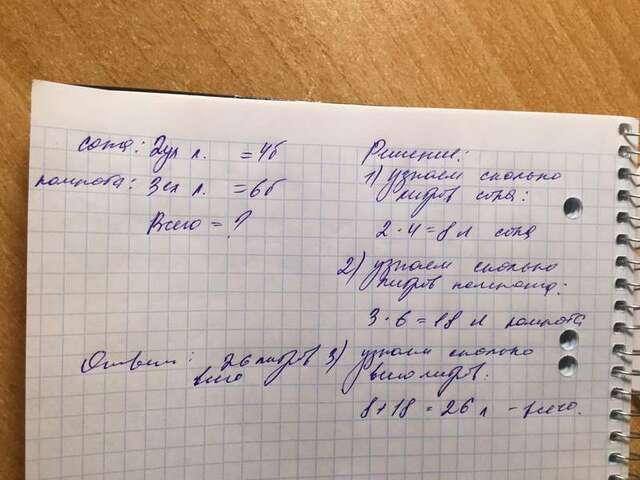 сока: 2 л. = 4б
компота: 3 л. = 6б
Всего = ?
Ответ: 26 литров
всего
Решение:
1) узнаем сколько
литров сока:
2 · 4 = 8 л сока
2) узнаем сколько
литров компота:
3 · 6 = 18 л компота
3) узнаем сколько
всего литров:
8 + 18 = 26 л - всего.